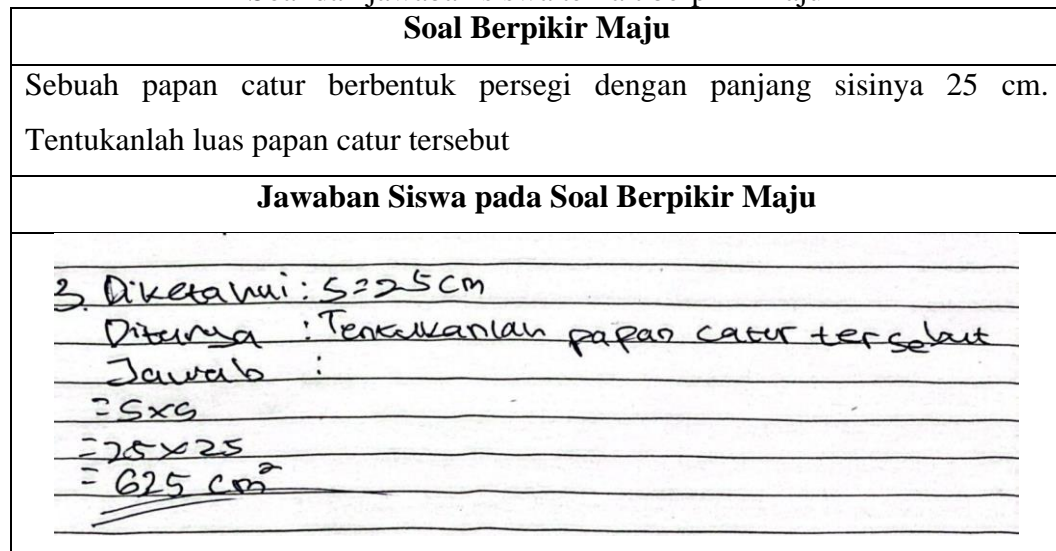 Soal Berpikir Maju
Sebuah papan catur berbentuk persegi dengan panjang sisinya 25 cm.
Tentukanlah luas papan catur tersebut
Jawaban Siswa pada Soal Berpikir Maju
3. Diketahui : S=25 cm
Ditanya : Tentukanlah papan catur tersebut
Jawab :
= S×S
= 25×25
= 625 cm²